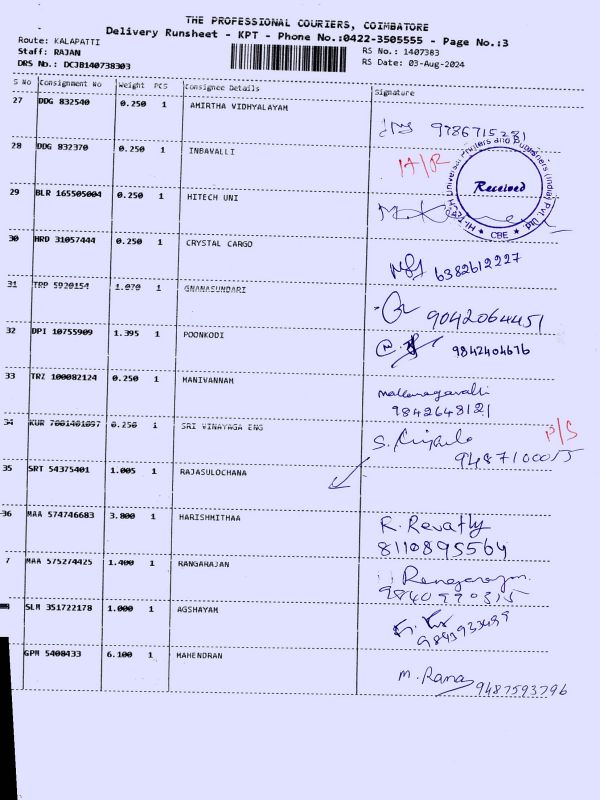 THE PROFESSIONAL COURIERS, COIMBATORE
Delivery Runsheet - KPT - Phone No.:0422-3505555 - Page No.:3
Route: KALAPATTI
RS No.: 1407383
Staff: RAJAN
RS Date: 03-Aug-2024
DRS No.: DCJB140738303
S No Consignment No Weight PCS Consignee Details Signature
27 DDG 832540 0.250 1 AMIRTHA VIDHYALAYAM
9786715231
28 DDG 832370 0.250 1 INBAVALLI
Hi-Tech Universal Printers and Publishers (India) Pvt. Ltd.
Received
★ CBE ★
29 BLR 165505004 0.250 1 HITECH UNI
30 HRD 31057444 0.250 1 CRYSTAL CARGO
6382612227
31 TRP 5920154 1.070 1 GNANASUNDARI
9042064451
32 DPI 10755909 1.395 1 POONKODI
9842404676
33 TRZ 100082124 0.250 1 MANIVANNAM
9842648121
34 KUR 7001401097 0.250 1 SRI VINAYAGA ENG
P/S
9487100015
35 SRT 54375401 1.005 1 RAJASULOCHANA
36 MAA 574746683 3.800 1 HARISHMITHAA
R. Revathy
8110895564
7 MAA 575274425 1.400 1 RANGARAJAN
Rangarajan
9840990315
SLM 351722178 1.000 1 AGSHAYAM
9843933499
GPM 5408433 6.100 1 MAHENDRAN
M. Rana
9487593796